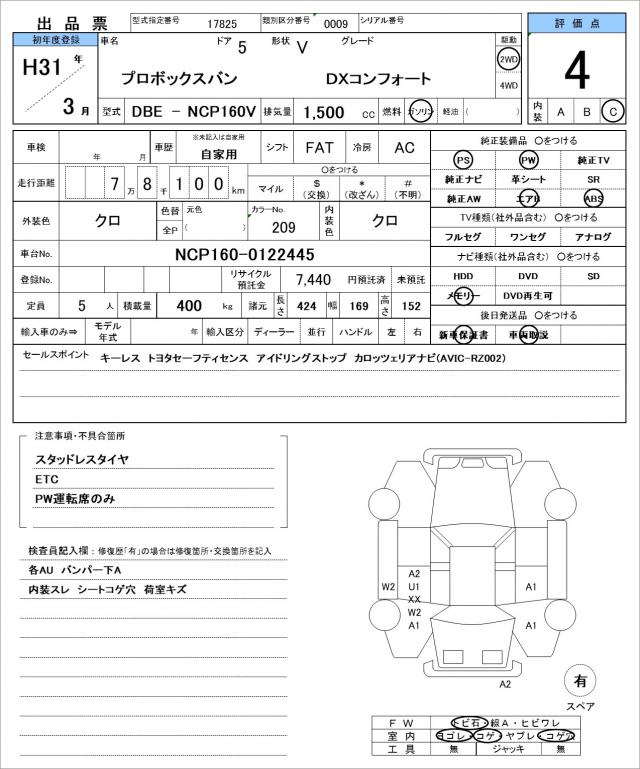 出品票 型式指定番号 17825 類別区分番号 0009 シリアル番号
評価点
初年度登録 車名 ドア 5 形状 V グレード 駆動
H31年 プロボックスバン DXコンフォート 2WD
4WD
4
3月 型式 DBE － NCP160V 排気量 1,500 cc 燃料 ガソリン 軽油 ( ) 内装 A B C
車検 年 月 車歴 ※未記入は自家用 自家用 シフト FAT 冷房 AC
純正装備品 〇をつける
走行距離 7万8千100km マイル 〇をつける $(交換) *(改ざん) #(不明)
PS PW 純正TV
純正ナビ 革シート SR
純正AW エアB ABS
外装色 クロ 色替 全P 元色 ( ) カラーNo. 209 内装色 クロ
TV種類(社外品含む) 〇をつける
フルセグ ワンセグ アナログ
車台No. NCP160-0122445
ナビ種類(社外品含む) 〇をつける
登録No. リサイクル預託金 7,440 円預託済 未預託
HDD DVD SD
メモリー DVD再生可
定員 5 人 積載量 400 kg 諸元 長さ 424 幅 169 高さ 152
後日発送品 〇をつける
輸入車のみ⇒ モデル年式 年 輸入区分 ディーラー 並行 ハンドル 左 右
新車保証書 車両取説
セールスポイント キーレス トヨタセーフティセンス アイドリングストップ カロッツェリアナビ(AVIC-RZ002)
注意事項・不具合箇所
スタッドレスタイヤ
ETC
PW運転席のみ
検査員記入欄：修復歴「有」の場合は修復箇所・交換箇所を記入
各AU バンパー下A
内装スレ シートコゲ穴 荷室キズ
W2
A2
U1
XX
W2
A1
A1
A1
A2
有
スペア
ＦＷ トビ石・線A・ヒビワレ
室内 ヨゴレ・コゲ・ヤブレ・コゲ穴
工具 無 ジャッキ 無